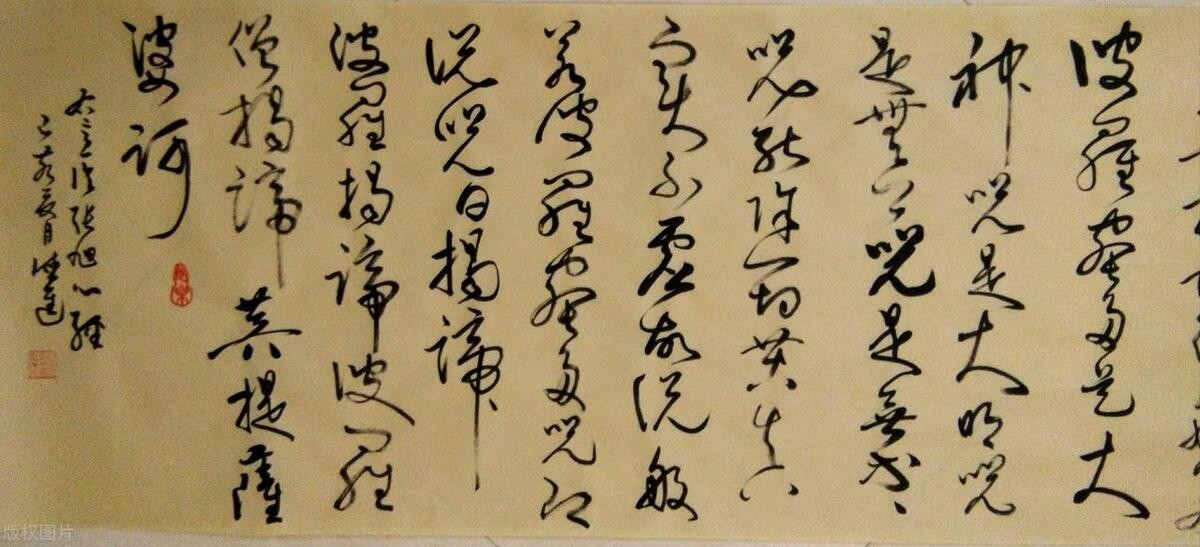 波羅蜜多是大
神咒是大明咒
是無上咒是無等々
咒能除一切苦真
實不虛故説般
若波羅蜜多咒即
説咒曰揭諦
波羅揭諦波羅
僧揭諦菩提薩
婆訶
張旭心經
己亥夏月
版权图片